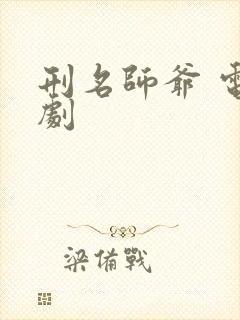 刑名師爺 電
劇
梁備戰